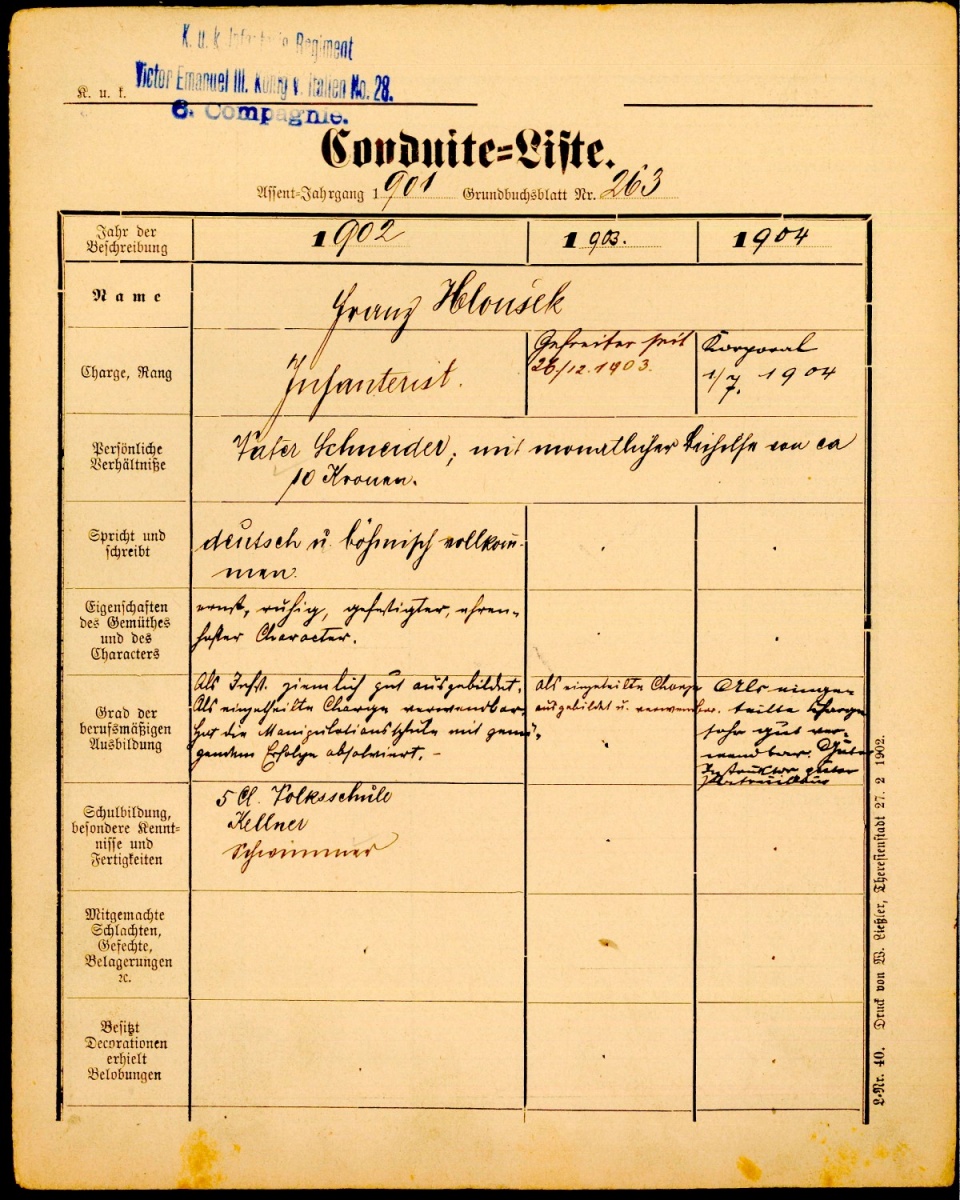 K. u. k. Infanterie Regiment
Victor Emanuel III. König v. Italien No. 28.
K. u. k.
6. Compagnie.
Conduite-Liste.
Assent-Jahrgang 1901 Grundbuchsblatt Nr. 263
Jahr der
Beschreibung
1902
1903.
1904
Name
Franz Hloušek
Charge, Rang
Infanterist.
Gefreiter seit
26/12. 1903.
Korporal
1/7. 1904
Persönliche
Verhältniße
Vater Schneider, mit monatlicher Beihilfe von ca
10 Kronen.
Spricht und
schreibt
deutsch u. böhmisch vollkom-
men.
Eigenschaften
des Gemüthes
und des
Characters
ernst, ruhig, gefestigter, ehren-
hafter Character.
Grad der
berufsmäßigen
Ausbildung
Als Infst. ziemlich gut ausgebildet.
Als eingetheilte Charge verwendbar,
hat die Manipulationsschule mit genü-
gendem Erfolge absolviert. –
Als eingeteilte Charge
ausgebildet u. verwendbar.
Als einge-
teilte Charge
sehr gut ver-
wendbar. Guter
Instruktor guter
Schulbildung,
besondere Kennt-
nisse und
Fertigkeiten
5 Cl. Volksschule
Kellner
Schwimmer
Mitgemachte
Schlachten,
Gefechte,
Belagerungen
ꝛc.
Besitzt
Decorationen
erhielt
Belobungen
L-Nr. 40. Druck von W. Ließler, Theresienstadt 27. 2 1902.